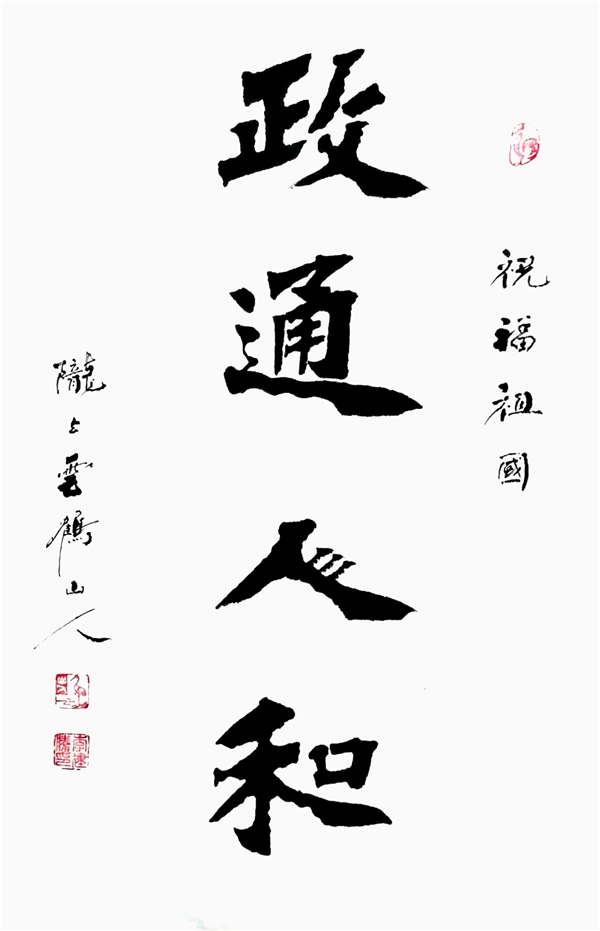 祝福祖國
政通人和
隴上雲鶴山人